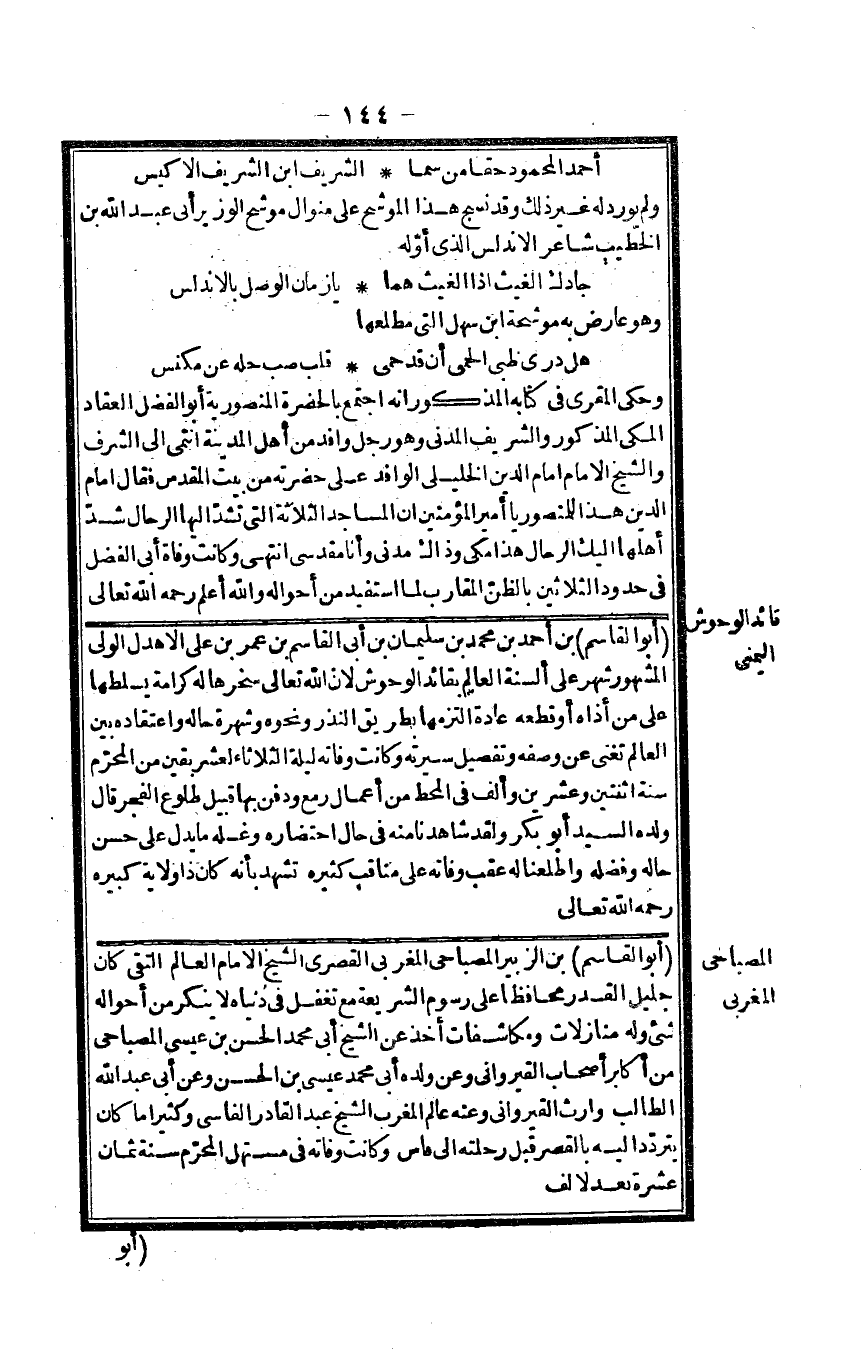 - ١٤٤ -
أحمد المحمود حقا من سما * الشريف ابن الشريف الاكيس
ولم يورد له غير ذلك وقد نسج هذا الموشح على منوال موشح الوزير أبى عبد الله بن
الخطيب شاعر الاندلس الذى أوّله
جادك الغيث اذا الغيث هما * يا زمان الوصل بالاندلس
وهو عارض به موشحة ابن سهل التى مطلعها
هل درى ظبى الحمى أن قد حمى * قلب صب حله عن مكنس
وحكى المقرى فى كتابه المذكور انه اجتمع بالحضرة المنصورية أبو الفضل العقاد
المكى المذكور والشريف المدنى وهو رجل وافد من أهل المدينة انتمى الى الشرف
والشيخ الامام امام الدين الخليلى الوافد على حضرته من بيت المقدس فقال امام
الدين هذا للمنصور يا أمير المؤمنين ان المساجد الثلاثة التى تشدّ اليها الرحال شدّ
أهلها اليك الرحال هذا مكى وذاك مدنى وأنا مقدسى انتهى وكانت وفاة أبى الفضل
فى حدود الثلاثين بالظنّ المقارب لما استفيد من أحواله والله أعلم رحمه الله تعالى
قائد الوحوش
اليمنى
(أبو القاسم) بن أحمد بن محمد بن سليمان بن أبى القاسم بن عمر بن على الاهدل الولى
المشهور شهر على ألسنة العالم بقائد الوحوش لانّ الله تعالى سخرها له كرامة يسلطها
على من أذاه أو قطعه عادة التزمها بطريق النذر ونحوه وشهرة حاله واعتقاده بين
العالم تغنى عن وصفه وتفصيل سيرته وكانت وفاته ليلة الثلاثاء لعشر بقين من المحرّم
سنة اثنتين وعشرين وألف فى المحط من أعمال رمع ودفن بها قبيل طلوع الفجر قال
ولده السيد أبو بكر ولقد شاهدنا منه فى حال احتضاره وغسله ما يدل على حسن
حاله وفضله واطلعنا له عقب وفاته على مناقب كثيره تشهد بأنه كان ذا ولاية كبيره
رحمه الله تعالى
المصباحى
المغربى
(أبو القاسم) بن الزبير المصباحى المغربى القصرى الشيخ الامام العالم التقى كان
جليل القدر محافظا على رسوم الشريعة مع تغفل فى دنياه لا ينكر من أحواله
شئ وله منازلات ومكاشفات أخذ عن الشيخ أبى محمد الحسن بن عيسى المصباحى
من أكابر أصحاب القيروانى وعن ولده أبى محمد عيسى بن الحسن وعن أبى عبد الله
الطالب وارث القيروانى وعنه عالم المغرب الشيخ عبد القادر الفاسى وكثيرا ما كان
يتردّد اليه بالقصر قبل رحلته الى فاس وكانت وفاته فى مستهل المحرّم سنة ثمان
عشرة بعد الالف
(أبو